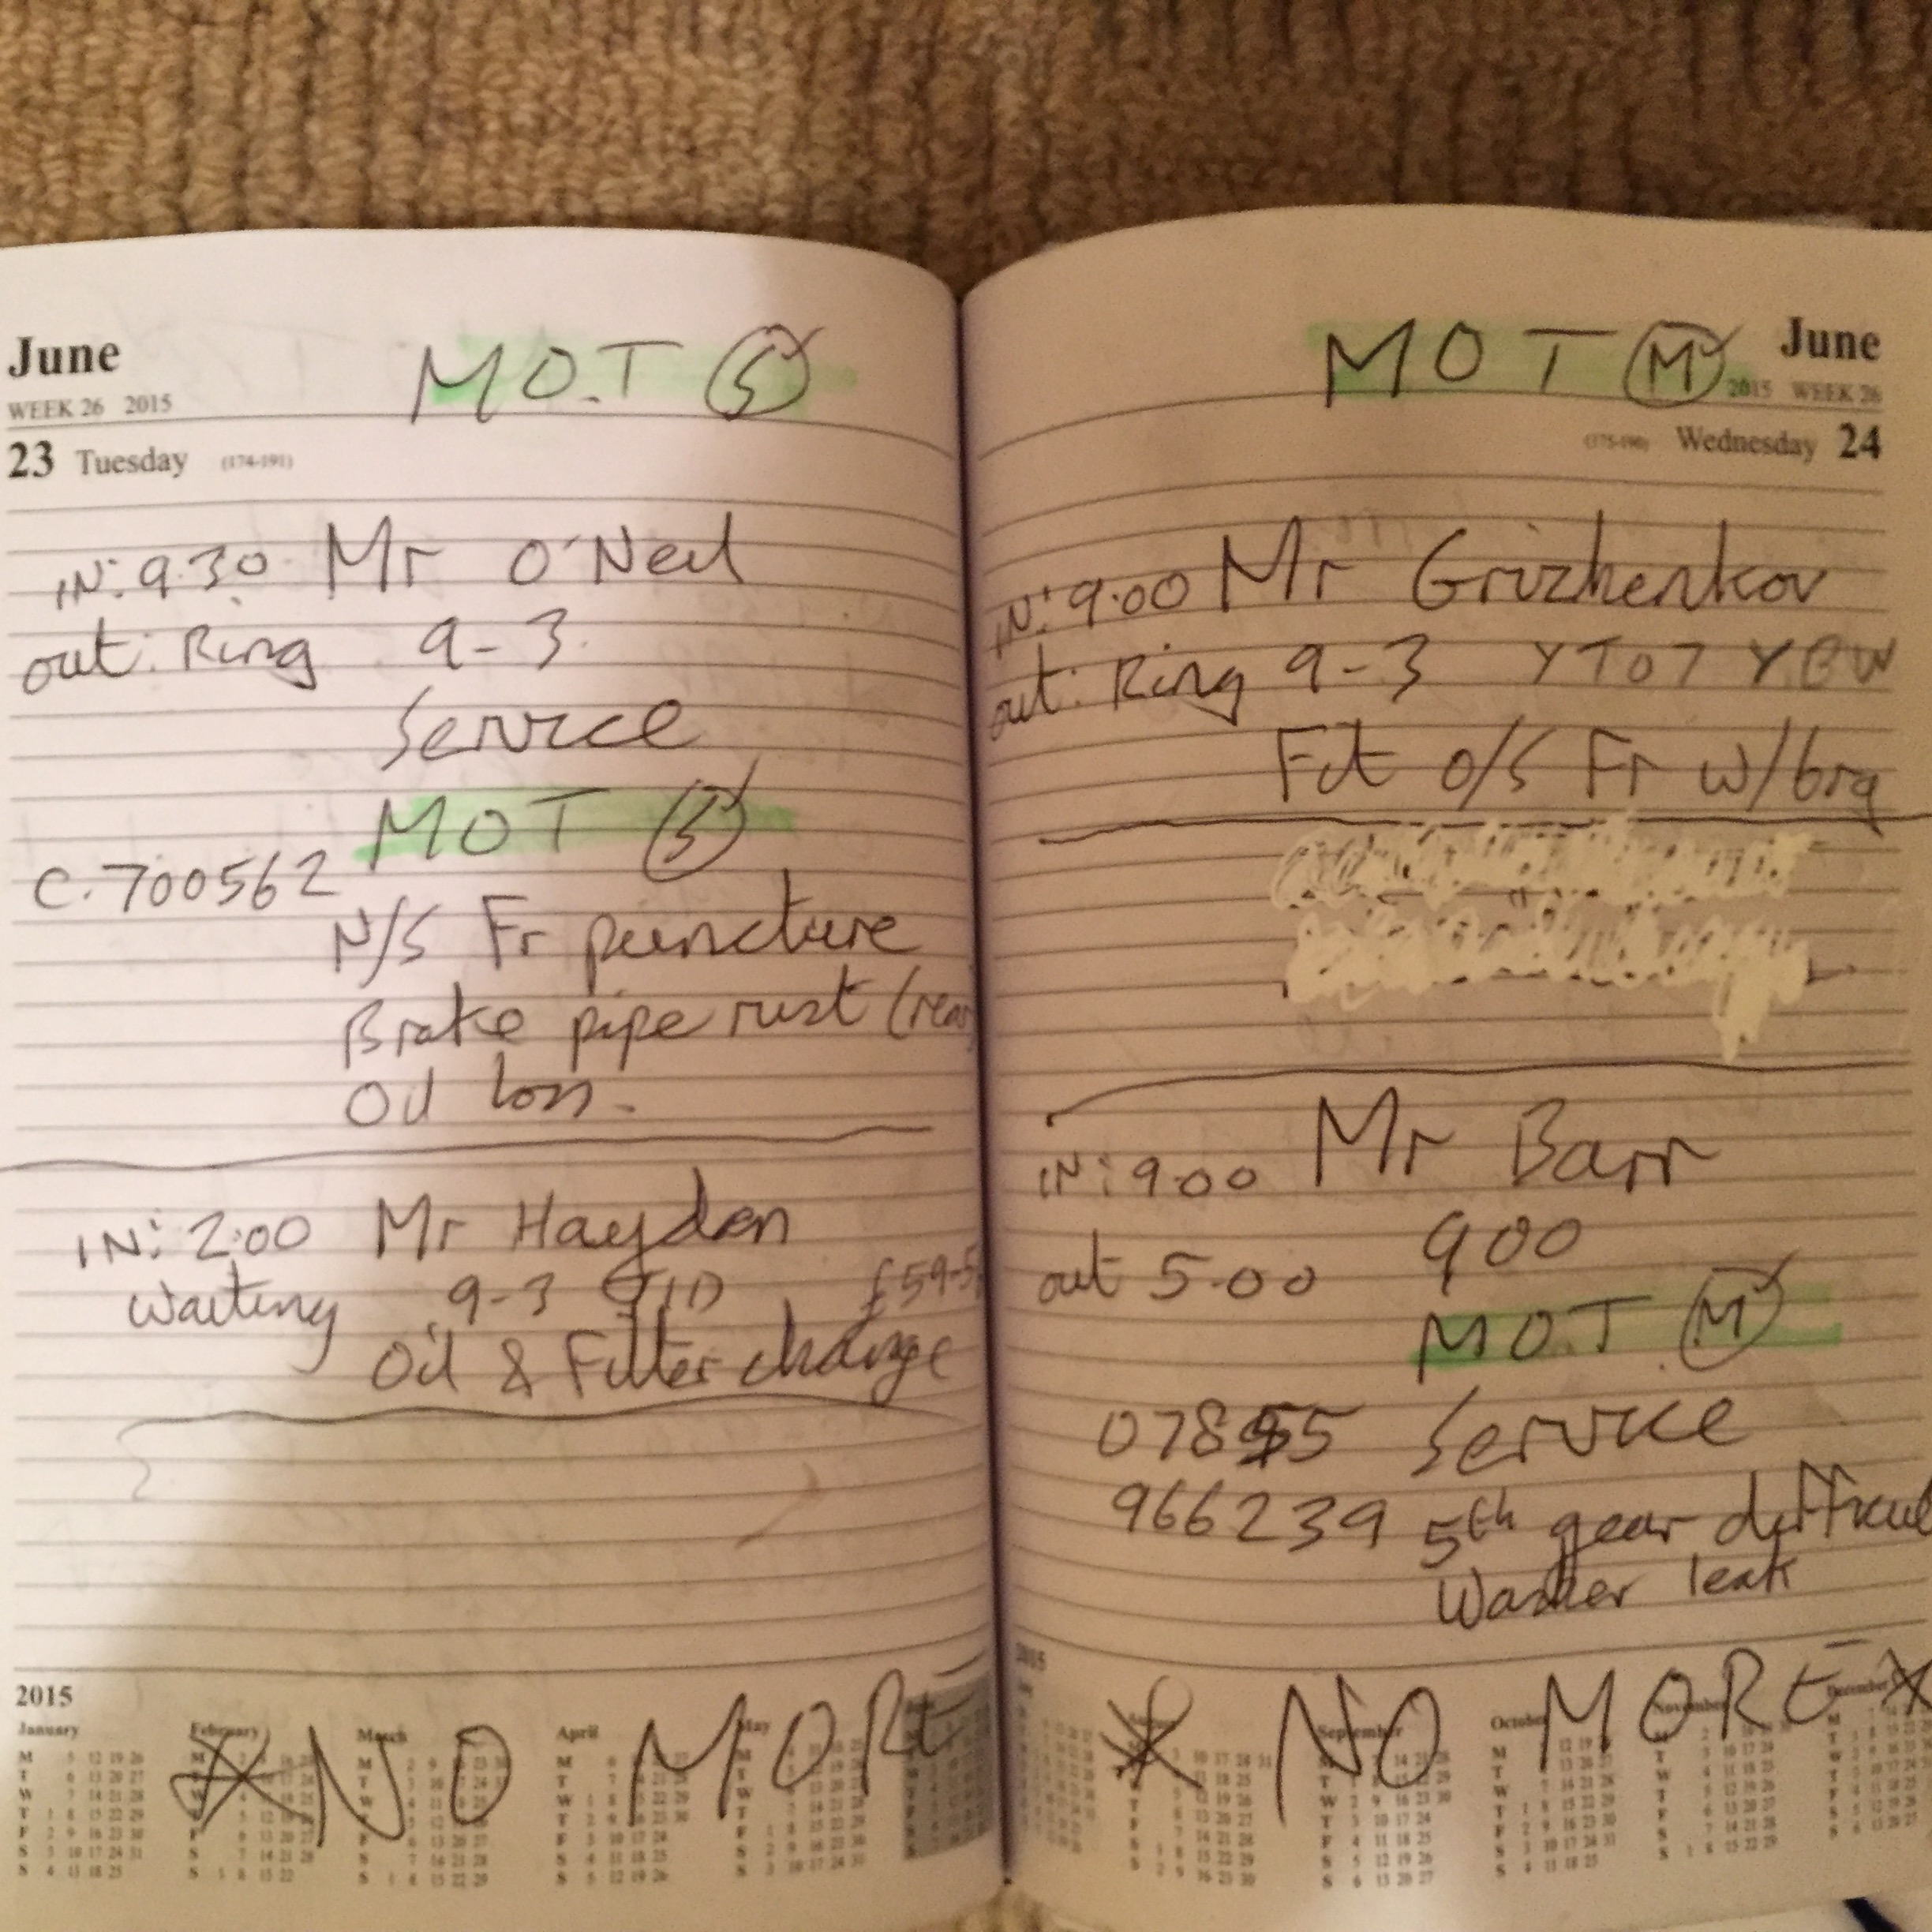 June
WEEK 26 2015
23 Tuesday (174-191)
M.O.T
IN: 9.30. Mr O'Neil
out: Ring 9-3.
Service
M.O.T
C.7700562
N/S Fr puncture
Brake pipe rust (rear
Oil loss.
IN: 2.00 Mr Hayden
Waiting 9-3
Oil & Filter change
NO MORE
2015
January
February
March
April
May
June
2015 WEEK 26
Wednesday 24
(175-190)
MOT (M)
IN: 9.00 Mr Grizhenkov
out: Ring 9-3
Fit o/s Fr w/brg
IN: 9.00 Mr Barr
out 5-00 900
M.O.T (M)
Service
966239 5th gear difficult
Water leak
NO MORE
2015
September
October
November
December